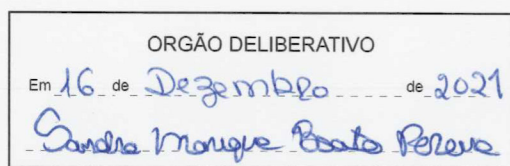 ORGÃO DELIBERATIVO
Em 16 de Dezembro de 2021
Sandra Monique Pereira